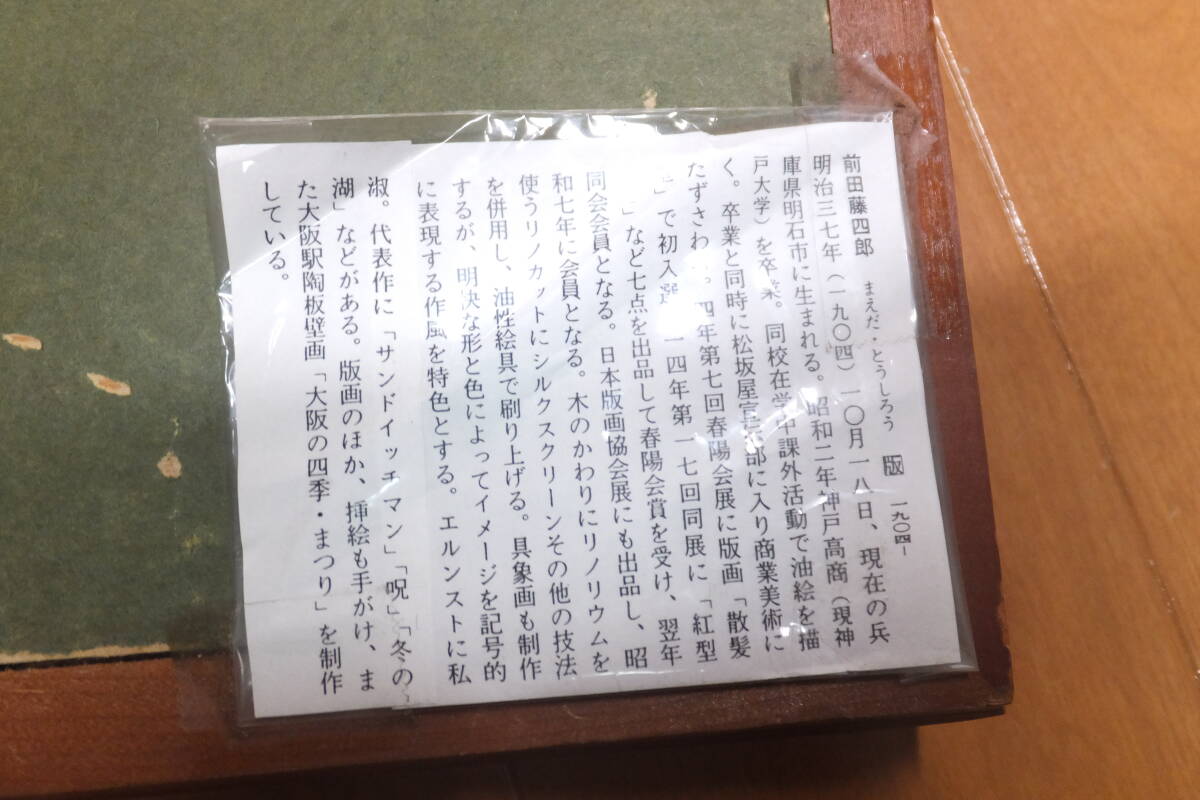 前田藤四郎 まえだ・とうしろう 版 一九〇四―
明治三七年（一九〇四）一〇月一八日、現在の兵
庫県明石市に生まれる。昭和二年神戸高商（現神
戸大学）を卒業。同校在学中課外活動で油絵を描
く。卒業と同時に松坂屋宣伝部に入り商業美術に
たずさわ 。四年第七回春陽会展に版画「散髪
」で初入選 一四年第一七回同展に「紅型
」など七点を出品して春陽会賞を受け、翌年
同会会員となる。日本版画協会展にも出品し、昭
和七年に会員となる。木のかわりにリノリウムを
使うリノカットにシルクスクリーンその他の技法
を併用し、油性絵具で刷り上げる。具象画も制作
するが、明決な形と色によってイメージを記号的
に表現する作風を特色とする。エルンストに私
淑。代表作に「サンドイッチマン」「呪」「冬の
湖」などがある。版画のほか、挿絵も手がけ、ま
た大阪駅陶板壁画「大阪の四季・まつり」を制作
している。